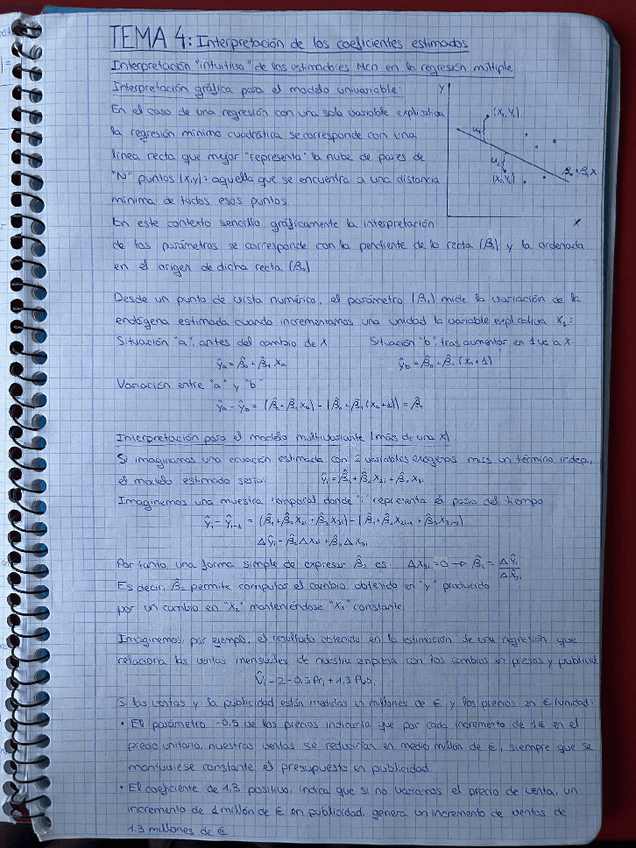 TEMA 4: Interpretación de los coeficientes estimados
Interpretación "intuitiva" de los estimadores MCO en la regresión múltiple
Interpretación gráfica para el modelo univariable:
En el caso de una regresión con una sola variable explicativa
la regresión mínimo cuadrática se corresponde con una
línea recta que mejor "representa" la nube de pares de
"N" puntos (x,y): aquella que se encuentra a una distancia
mínima de todos esos puntos.
En este contexto sencillo gráficamente la interpretación
de los parámetros se corresponde con la pendiente de la recta (β̂₁) y la ordenada
en el origen de dicha recta (β̂₀)
Y
(X₁, Y₁)
u₁
u₂
β̂₀+β̂₁X
X
Desde un punto de vista numérico, el parámetro (β̂₁) mide la variación de la
endógena estimada cuando incrementamos una unidad la variable explicativa X₁:
Situación "a", antes del cambio de X
Situación "b", tras aumentar en 1 ud a X:
ŷₐ = β̂₀ + β̂₁ Xₐ
ŷ_b = β̂₀ + β̂₁ (Xₐ+1)
Variación entre "a" y "b"
ŷₐ - ŷ_b = (β̂₀ - β̂₁ Xₐ) - (β̂₀ + β̂₁ (Xₐ+1)) = β̂₁
Interpretación para el modelo multivariante (más de una X)
Si imaginamos una ecuación estimada con 2 variables exógenas más un término indep.,
el modelo estimado sería: Ŷᵢ = β̂₁ + β̂₂ X₂ᵢ + β̂₃ X₃ᵢ
Imaginemos una muestra temporal donde "i" representa el paso del tiempo
Ŷᵢ - Ŷᵢ₋₁ = (β̂₁ + β̂₂ X₂ᵢ + β̂₃ X₃ᵢ) - (β̂₁ + β̂₂ X₂ᵢ₋₁ + β̂₃ X₃ᵢ₋₁)
ΔŶᵢ = β̂₂ ΔX₂ᵢ + β̂₃ ΔX₃ᵢ
Por tanto, una forma simple de expresar β̂₂ es ΔX₃ᵢ = 0 → β̂₂ = ΔŶᵢ / ΔX₂ᵢ
Es decir, β̂₂ permite computar el cambio obtenido en "y" producido
por un cambio en "X₂" manteniéndose "X₃" constante.
Imaginemos, por ejemplo, el resultado obtenido en la estimación de una regresión que
relaciona las ventas mensuales de nuestra empresa con los cambios en precios y publicid.
V̂ᵢ = 2 - 0,5 Prᵢ + 1,3 Pubᵢ
Si las ventas y la publicidad están medidas en millones de € y los precios en €/unidad:
• El parámetro -0,5 de los precios indicaría que por cada incremento de 1€ en el
precio unitario, nuestras ventas se reducirían en medio millón de €, siempre que se
mantuviese constante el presupuesto en publicidad.
• El coeficiente de 1,3 positivo, indica que si no variamos el precio de venta, un
incremento de 1 millón de € en publicidad, genera un incremento de ventas de
1,3 millones de €